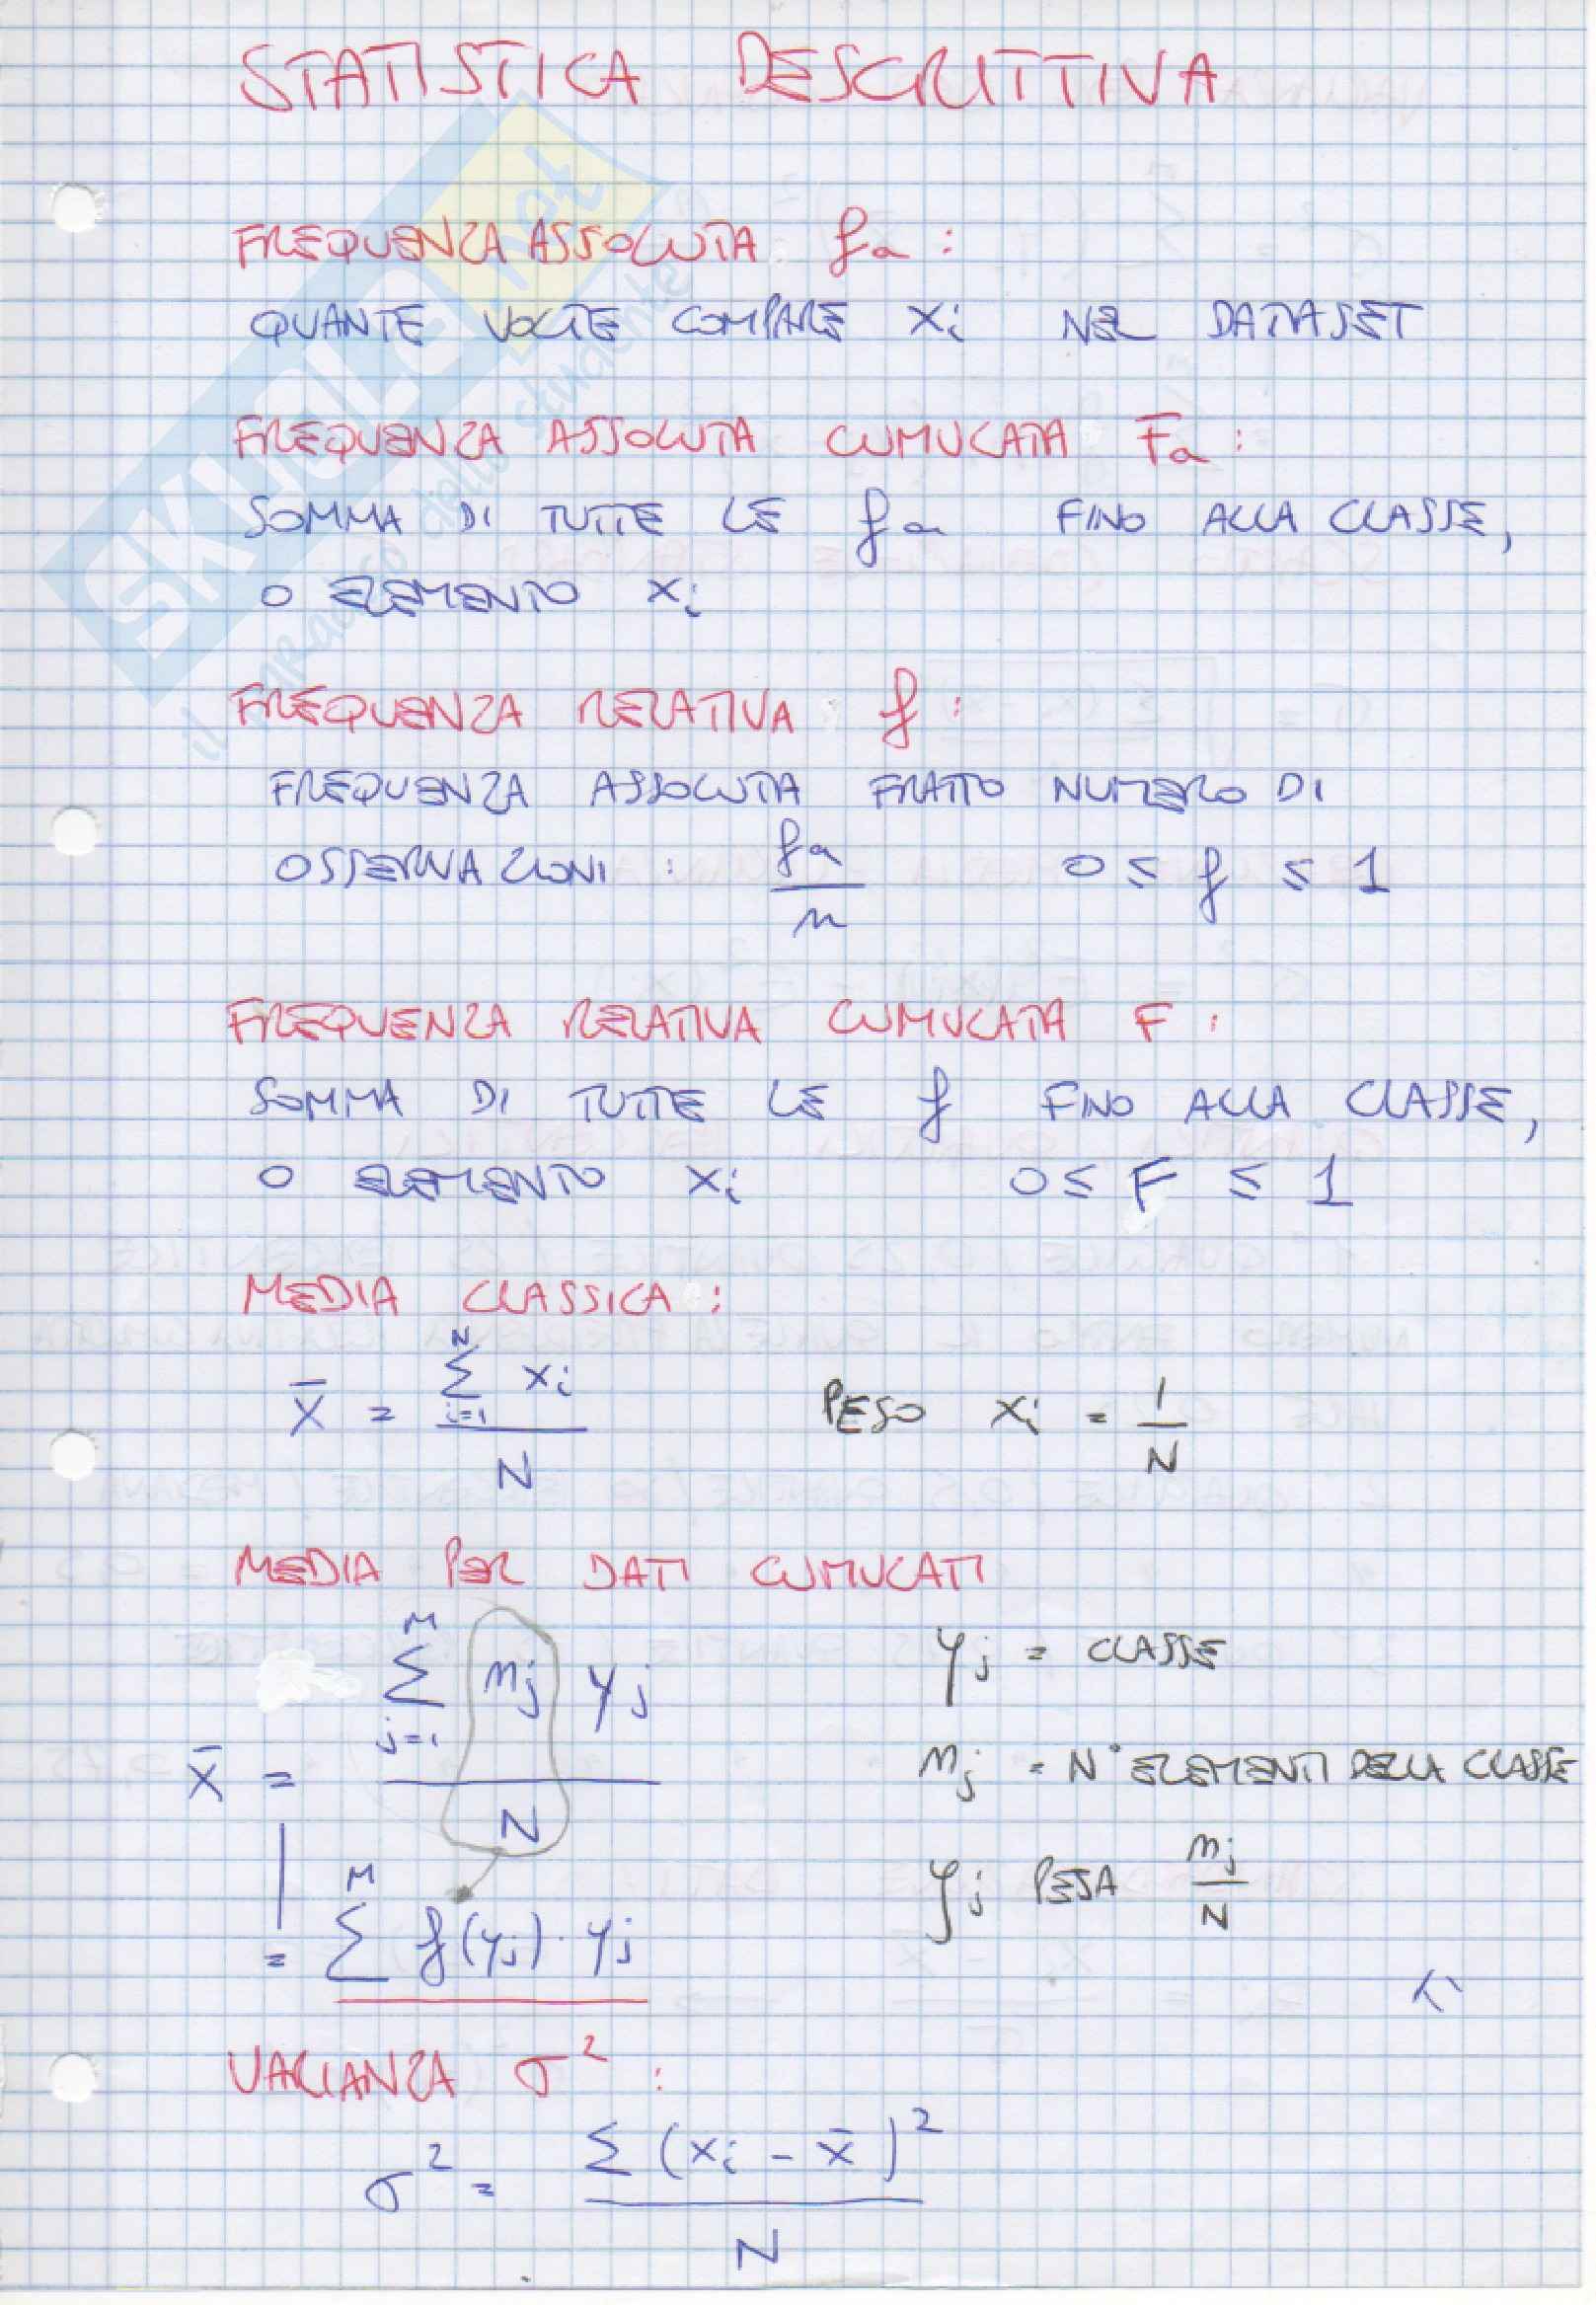 STATISTICA DESCRITTIVA
FREQUENZA ASSOLUTA fa :
QUANTE VOLTE COMPARE xi NEL DATASET
FREQUENZA ASSOLUTA CUMULATA Fa :
SOMMA DI TUTTE LE fa FINO ALLA CLASSE,
O ELEMENTO xi
FREQUENZA RELATIVA f :
FREQUENZA ASSOLUTA FRATTO NUMERO DI
OSSERVAZIONI : fa/n 0 ≤ f ≤ 1
FREQUENZA RELATIVA CUMULATA F :
SOMMA DI TUTTE LE f FINO ALLA CLASSE,
O ELEMENTO xi 0 ≤ F ≤ 1
MEDIA CLASSICA :
x̄ = ∑_{i=1}^{N} xi / N PESO xi = 1/N
MEDIA PER DATI CUMULATI
x̄ = ∑_{j=1}^{M} nj yj / N
yj = CLASSE
nj = N° ELEMENTI DELLA CLASSE
yj PESA nj/N
= ∑^{M} f(yj) · yj
VARIANZA σ² :
σ² = ∑ (xi - x̄)² / N
SKUOLA.net
il paradiso dello studente